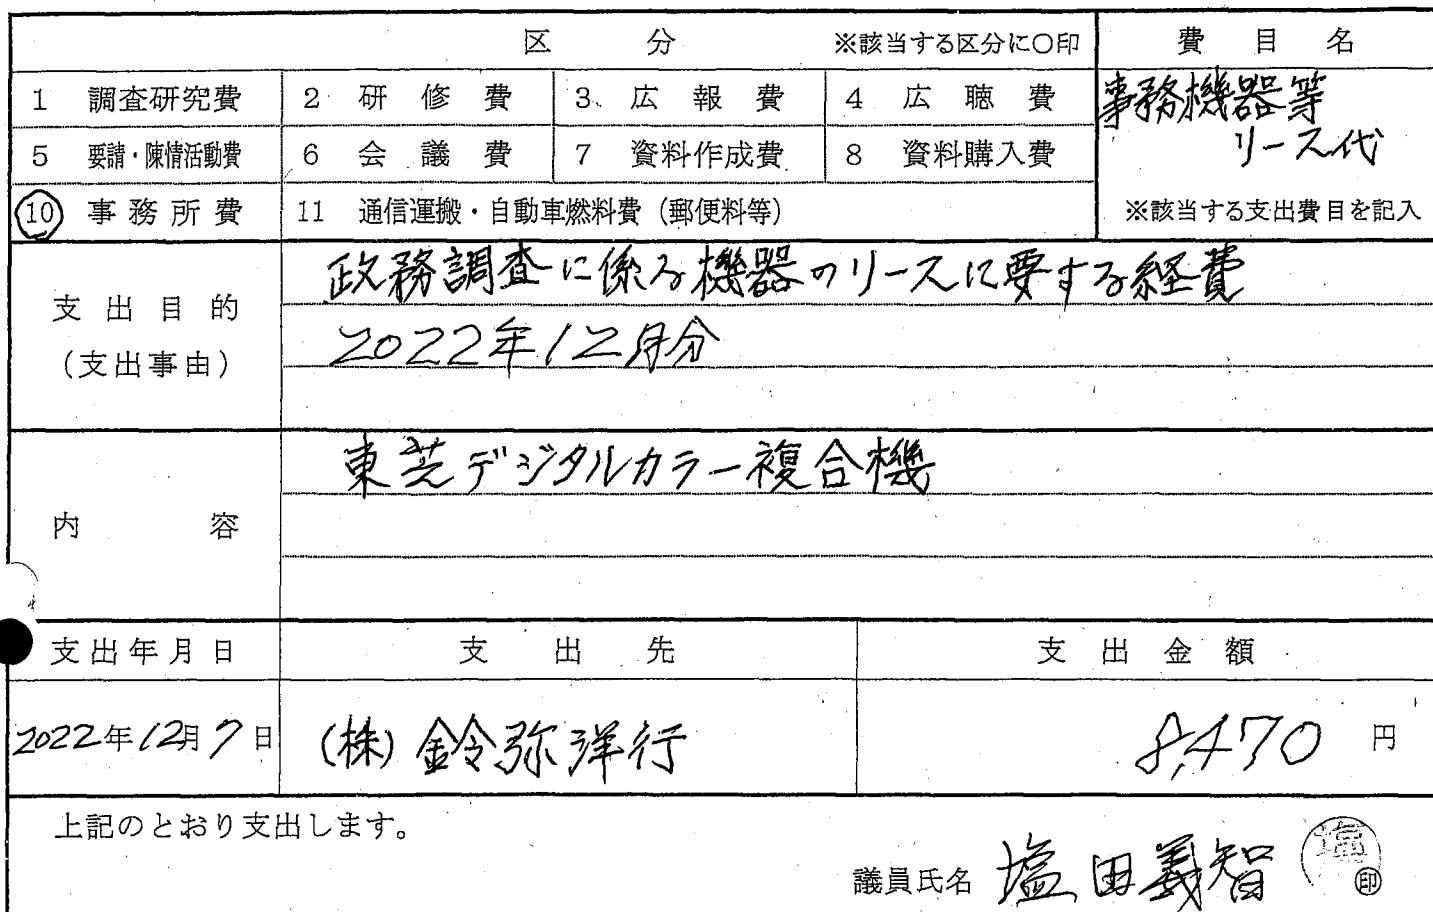 区分 ※該当する区分に○印 費目名
1 調査研究費 2 研修費 3 広報費 4 広聴費 事務機器等
リース代
5 要請・陳情活動費 6 会議費 7 資料作成費 8 資料購入費
10 事務所費 11 通信運搬・自動車燃料費(郵便料等) ※該当する支出費目を記入
支出目的
(支出事由)
政務調査に係る機器のリースに要する経費
2022年12月分
内容
東芝デジタルカラー複合機
支出年月日 支出先 支出金額
2022年12月7日 (株)鈴弥洋行 8,470円
上記のとおり支出します。
議員氏名 塩田義智 印